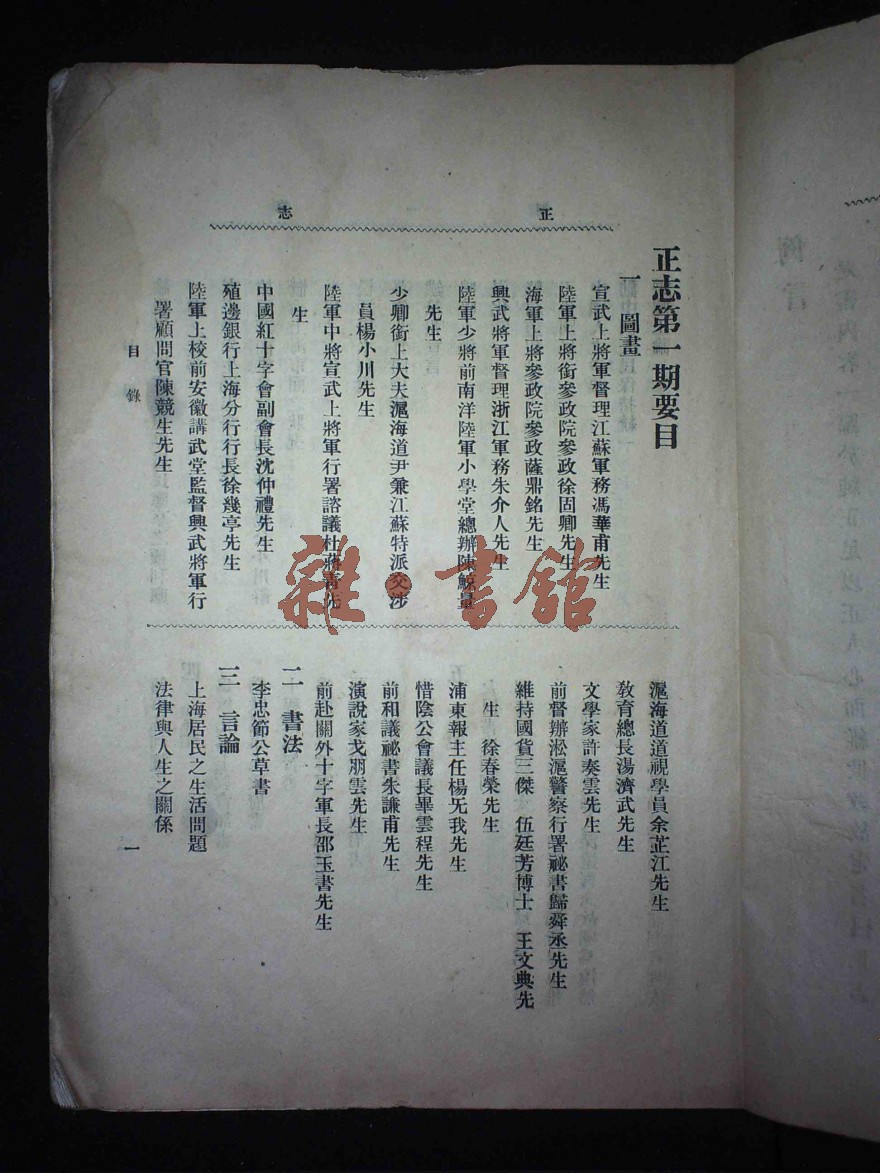 正志
正志第一期要目
一 圖畫
宣武上將軍督理江蘇軍務馮華甫先生
陸軍上將銜參政院參政徐固卿先生
海軍上將參政院參政薩鼎銘先生
興武將軍督理浙江軍務朱介人先生
陸軍少將前南洋陸軍小學堂總辦陳鯢量
先生
少卿銜上大夫滬海道尹兼江蘇特派交涉
員楊小川先生
陸軍中將宣武上將軍行署諮議杜蔣青先
生
中國紅十字會副會長沈仲禮先生
殖邊銀行上海分行行長徐幾亭先生
陸軍上校前安徽講武堂監督興武將軍行
署顧問官陳競生先生
滬海道道視學員余芷江先生
敎育總長湯濟武先生
文學家許奏雲先生
前督辦淞滬警察行署祕書歸舜丞先生
維持國貨三傑 伍廷芳博士 王文典先
生 徐春榮先生
浦東報主任楊旡我先生
惜陰公會議長畢雲程先生
前和議祕書朱謙甫先生
演說家戈朋雲先生
前赴關外十字軍長邵玉書先生
二 書法
李忠節公草書
三 言論
上海居民之生活問題
法律與人生之關係
目錄
一
雜·書館